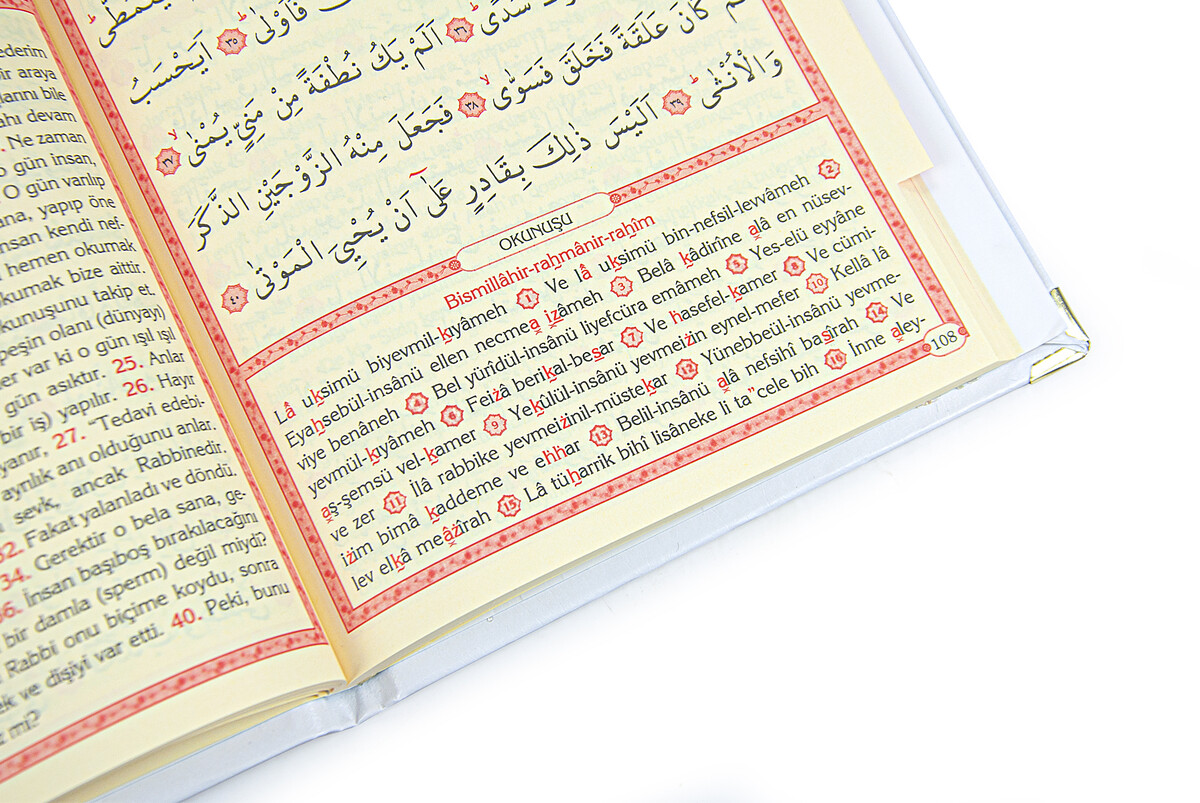 ederim
bir araya
larını bile
ahı devam
. Ne zaman
o gün insan,
O gün varılıp
ana, yapıp öne
insan kendi nef-
hemen okumak
kumak bize aittir.
kunuşunu takip et.
peşin olanı (dünyayı)
er var ki o gün ışıl ışıl
gün asıktır. 25. Anlar
bir iş) yapılır. 26. Hayır
yanır, 27. “Tedavi edebi-
ayrılık anı olduğunu anlar.
sevk, ancak Rabbinedir.
32. Fakat yalanladı ve döndü.
34. Gerektir o bela sana, ge-
36. İnsan başıboş bırakılacağını
bir damla (sperm) değil miydi?
Rabbi onu biçime koydu, sonra
ek ve dişiyi var etti. 40. Peki, bunu
z mi?
يَتَمَطّٰى
فَاَوْلٰى ﴿٣٥﴾ اَيَحْسَبُ
سُدًى ﴿٣٦﴾ اَلَمْ يَكُ نُطْفَةً مِنْ مَنِيٍّ يُمْنٰى ﴿٣٧﴾
كَانَ عَلَقَةً فَخَلَقَ فَسَوّٰى ﴿٣٨﴾ فَجَعَلَ مِنْهُ الزَّوْجَيْنِ الذَّكَرَ
وَالْاُنْثٰى ﴿٣٩﴾ اَلَيْسَ ذٰلِكَ بِقَادِرٍ عَلٰٓى اَنْ يُحْيِيَ الْمَوْتٰى ﴿٤٠﴾
OKUNUŞU
Bismillâhir-rahmânir-rahîm
Lâ uksimü biyevmil-kıyâmeh 1 Ve lâ uksimü bin-nefsil-levvâmeh 2
Eyahsebül-insânü ellen necmea izâmeh 3 Belâ kâdirîne alâ en nüsev-
viye benâneh 4 Bel yürîdül-insânü liyefcüra emâmeh 5 Yes-elü eyyâne
yevmül-kıyâmeh 6 Feiżâ berikal-besar 7 Ve hasefel-kamer 8 Ve cümi-
aş-şemsü vel-kamer 9 Yekûlül-insânü yevmeiżin eynel-mefer 10 Kellâ lâ
ve zer 11 İlâ rabbike yevmeiżinil-müstekar 12 Yünebbeül-insânü yevme-
iżim bimâ kaddeme ve ehhar 13 Belil-insânü alâ nefsihî basîrah 14 Ve
lev elkâ meâżîrah 15 Lâ tüharrik bihî lisâneke li ta”cele bih 16 İnne aley-
108